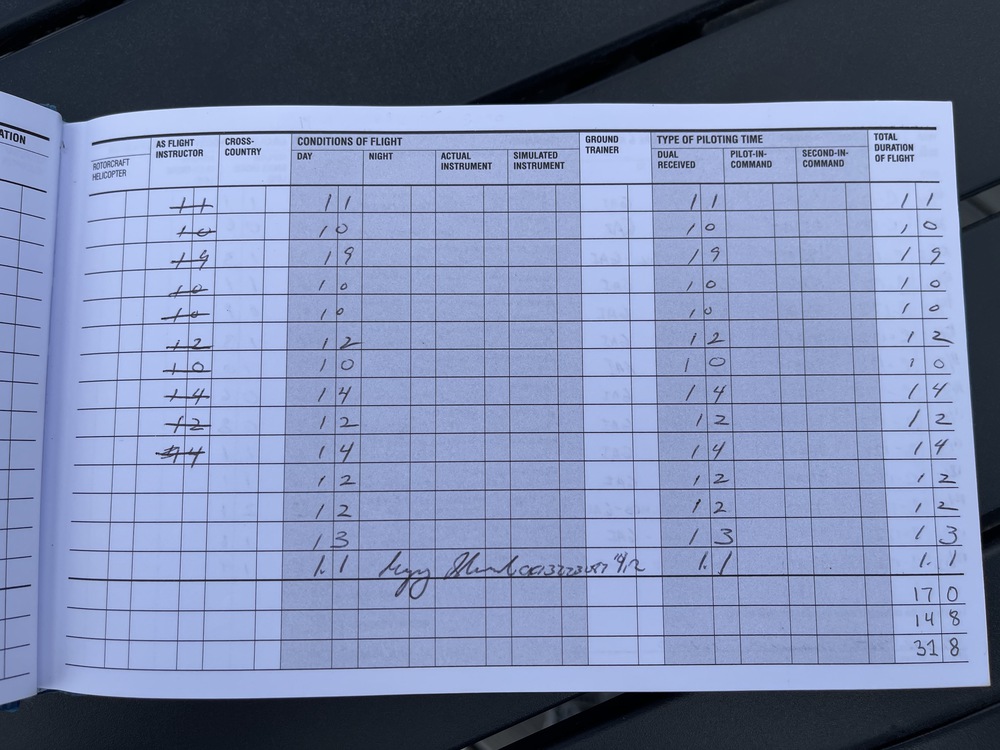 ATION
ROTORCRAFT HELICOPTER AS FLIGHT INSTRUCTOR CROSS-COUNTRY CONDITIONS OF FLIGHT DAY NIGHT ACTUAL INSTRUMENT SIMULATED INSTRUMENT GROUND TRAINER TYPE OF PILOTING TIME DUAL RECEIVED PILOT-IN-COMMAND SECOND-IN-COMMAND TOTAL DURATION OF FLIGHT
1 1 1 1 1 1 1 1
1 0 1 0 1 0 1 0
1 9 1 9 1 9 1 9
1 0 1 0 1 0 1 0
1 0 1 0 1 0 1 0
1 2 1 2 1 2 1 2
1 0 1 0 1 0 1 0
1 4 1 4 1 4 1 4
1 2 1 2 1 2 1 2
4 1 4 1 4 1 4
1 2 1 2 1 2
1 2 1 2 1 2
1 3 1 3 1 3
1.1 1.1 1.1
17 0
14 8
31 8